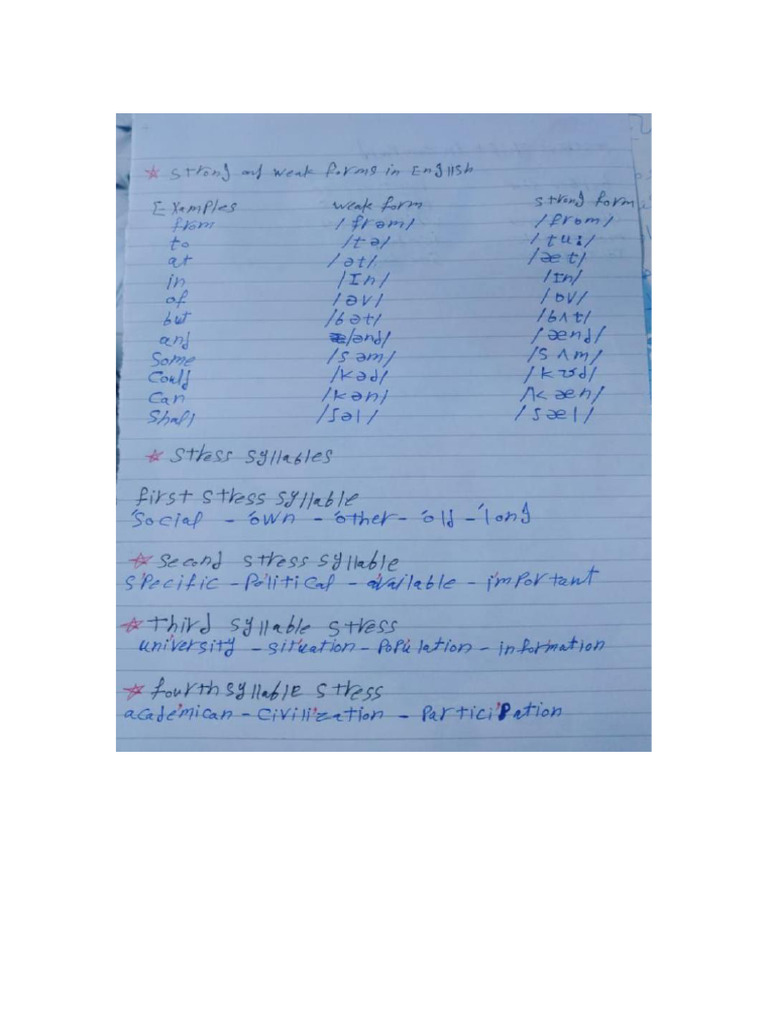 * Strong and weak forms in English
Examples weak form strong form
from /frəm/ /frɒm/
to /tə/ /tu:/
at /ət/ /æt/
in /ɪn/ /ɪn/
of /əv/ /ɒv/
but /bət/ /bʌt/
and /ənd/ /ænd/
Some /səm/ /sʌm/
Could /kəd/ /kʊd/
Can /kən/ /kæn/
Shall /ʃəl/ /ʃæl/
* Stress syllables
first stress syllable
'social - 'own - 'other - 'old - 'long
* Second stress syllable
sp'ecific - pol'itical - av'ailable - im'portant
* Third syllable stress
uni'versity - situ'ation - popu'lation - infor'mation
* fourth syllable stress
acade'mican - civili'zation - partici'pation